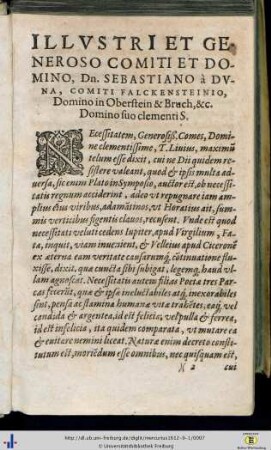 ILLVSTRI ET GE-
NEROSO COMITI ET DO-
MINO, Dn. SEBASTIANO à DV-
NA, COMITI FALCKENSTEINIO,
Domino in Oberstein & Bruch, &c.
Domino suo clementi S.
NEcessitatem, Generosiss. Comes, Domi-
ne clementissime, T. Liuius, maximū
telum esse dixit, cui ne Dii quidem re-
sistere valeant, quod & ipsis multa ad-
uersa, sicenim Plato in Symposio, auctor est, ob necessi-
tatis regnum acciderint, adeo vt repugnare tam am-
plius eius viribus, adamātinos, vt Horatius ait, sum-
mis verticibus figentis clauos, recusent. Vnde est quod
necessitati veluti cedens Iupiter, apud Virgilium, Fa-
ta, inquit, viam inuenient, & Velleius apud Ciceronē
ex æterna eam veritate causarumq́; cōtinuatione flu-
xisse, dixit, quæ cuncta sibi subigat, legemq́; haud vl-
lam agnoscat. Necessitatis autem filias Poetæ tres Par-
cas fecerūt, quæ & ipsæ ineluctabiles atq́; inexorabiles
sint, pensa ac stamina humanæ vitæ trahētes, eaq́; vel
candida & argentea, id est felicia, vel pulla & ferrea,
id est infelicia, ita quidem comparata, vt mutare ea
& euitare nemini liceat. Naturæ enim decreto consti-
tutum est, moriēdum esse omnibus, nec quisquam est,
2 cui
http://dl.ub.uni-freiburg.de/diglit/mercurius1592-9-1/0007
© Universitätsbibliothek Freiburg